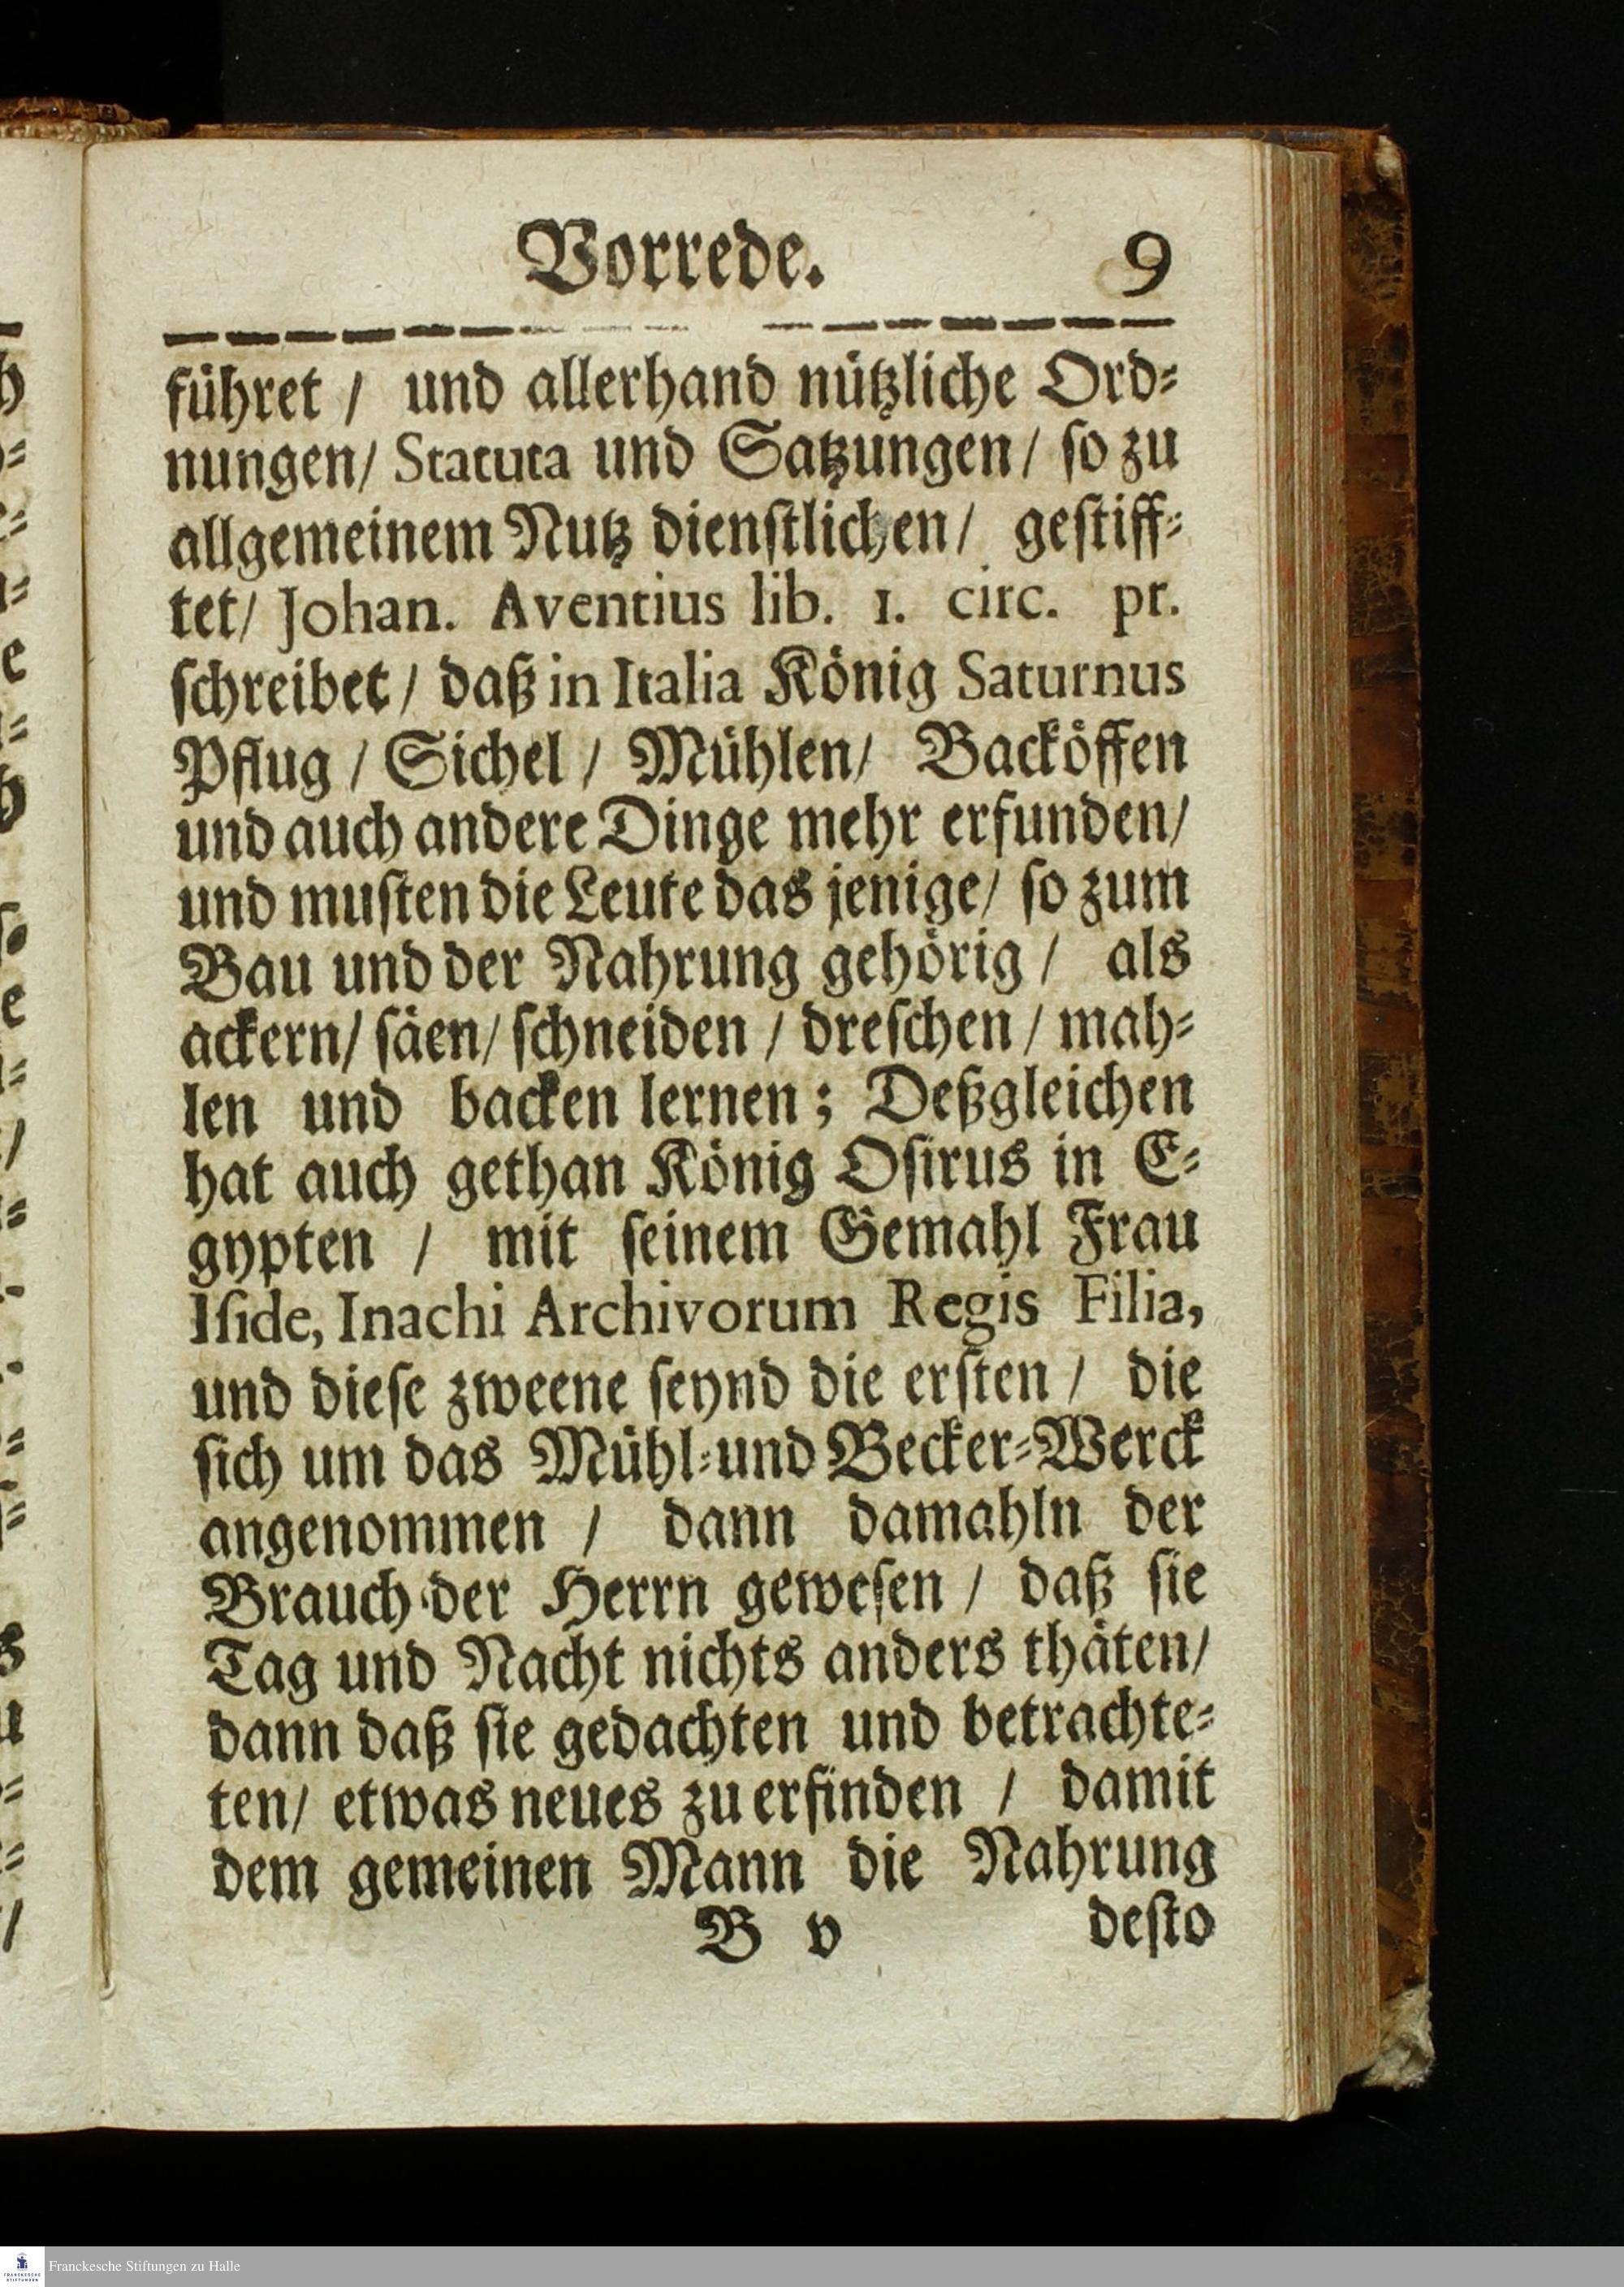 Vorrede. 9
führet / und allerhand nützliche Ord⸗
nungen/ Statuta und Satzungen/ so zu
allgemeinem Nutz dienstlichen/ gestiff⸗
tet/ Johan. Aventius lib. 1. circ. pr.
schreibet/ daß in Italia König Saturnus
Pflug / Sichel / Mühlen/ Backöffen
und auch andere Dinge mehr erfunden/
und musten die Leute das jenige/ so zum
Bau und der Nahrung gehörig / als
ackern/ säen/ schneiden / dreschen / mah⸗
len und backen lernen; Deßgleichen
hat auch gethan König Osirus in E⸗
gypten / mit seinem Gemahl Frau
Iside, Inachi Archivorum Regis Filia,
und diese zweene seynd die ersten / die
sich um das Mühl⸗und Becker⸗Werck
angenommen / dann damahln der
Brauch der Herrn gewesen / daß sie
Tag und Nacht nichts anders thäten/
dann daß sie gedachten und betrachte⸗
ten/ etwas neues zu erfinden / damit
dem gemeinen Mann die Nahrung
B v desto
Franckesche Stiftungen zu Halle